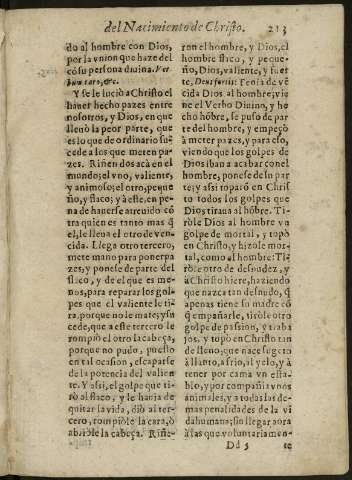 del Nacimiento de Christo. 213
do al hombre con Dios,
por la vnion que haze del
cō su persona diuina. Ver
bum caro, &c.
Y se le luciò a Christo el
hauer hecho pazes entre
nosotros, y Dios, en que
lleuò la peor parte, que
es lo que de ordinario su-
cede a los que meten pa-
zes. Riñen dos acà en el
mundo; el vno, valiente,
y animoso; el otro, peque
ño, y flaco; y à este, en pe-
na de hauerse atreuido cō
tra quien es tanto mas q̄
el, le lleua el otro de ven-
cida. Llega otro tercero,
mete mano para poner pa
zes, y ponese de parte del
flaco, y de el que es me-
nos, para reparar los gol-
pes que el valiente le ti-
ra, porque no le mate; y su
cede, que a este tercero le
rompiò el otro la cabeça,
porque no pudo, puesto
en tal ocasion, escaparse
de la potencia del valien
te. Y assi, el golpe que ti-
rò al flaco, y le hauia de
quitar la vida, diò al ter-
cero, rompiòle la cara, ò
abriòle la cabeça. Riñe-
ron el hombre, y Dios, el
hombre flaco, y peque-
ño, Dios, valiente, y fuer
te. Deus fortis: Tenia de vē
cida Dios al hombre, vie
ne el Verbo Diuino, y he
cho hōbre, se puso de par
te del hombre, y empeçò
à meter pazes, y para esto,
viendo que los golpes de
Dios iban a acabar con el
hombre, ponese de su par
te; y assi toparō en Chris
to todos los golpes que
Dios tiraua al hōbre. Ti-
ròle Dios al hombre vn
golpe de mortal, y topò
en Christo, y hizole mor-
tal, como al hombre: Ti-
ròle otro de desnudez, y
à Christo hiere, haziendo
que nazca tan desnudo, q̄
apenas tiene su madre cō
q̄ empañarle, tiròle otro
golpe de passion, y traba
jos, y topò en Christo tan
de lleno, que nace sugeto
à llanto, a frio, al yelo, y à
tener por cama vn esta-
blo, y por compañia vnos
animales, y a todas las de-
mas penalidades de la vi
da humana; sin llegar aora
à las que voluntariamen-
Dd 5 te